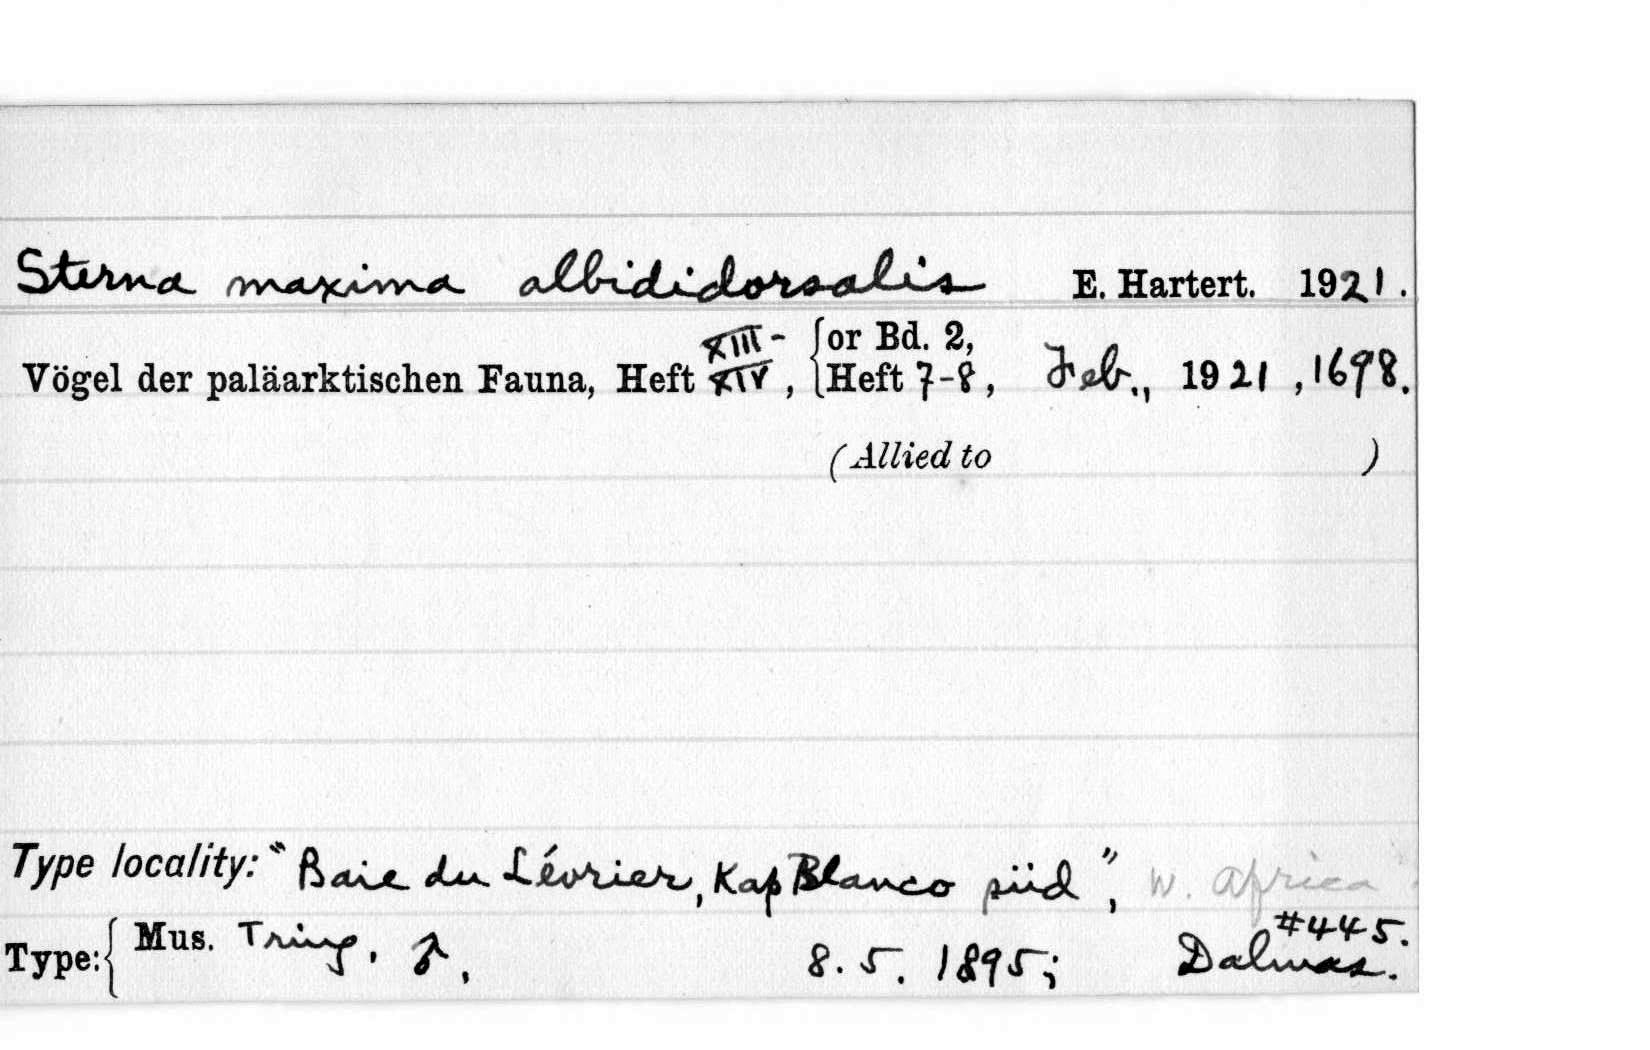 Sterna maxima albididorsalis E. Hartert. 1921.
Vögel der paläarktischen Fauna, Heft XIII-XIV, {or Bd. 2, Heft 7-8, Feb., 1921, 1698.
(Allied to )
Type locality: "Baie du Lévrier, Kap Blanco süd", W. Africa
Type: { Mus. Tring. ♂, 8. 5. 1895; Dalmas. #445.